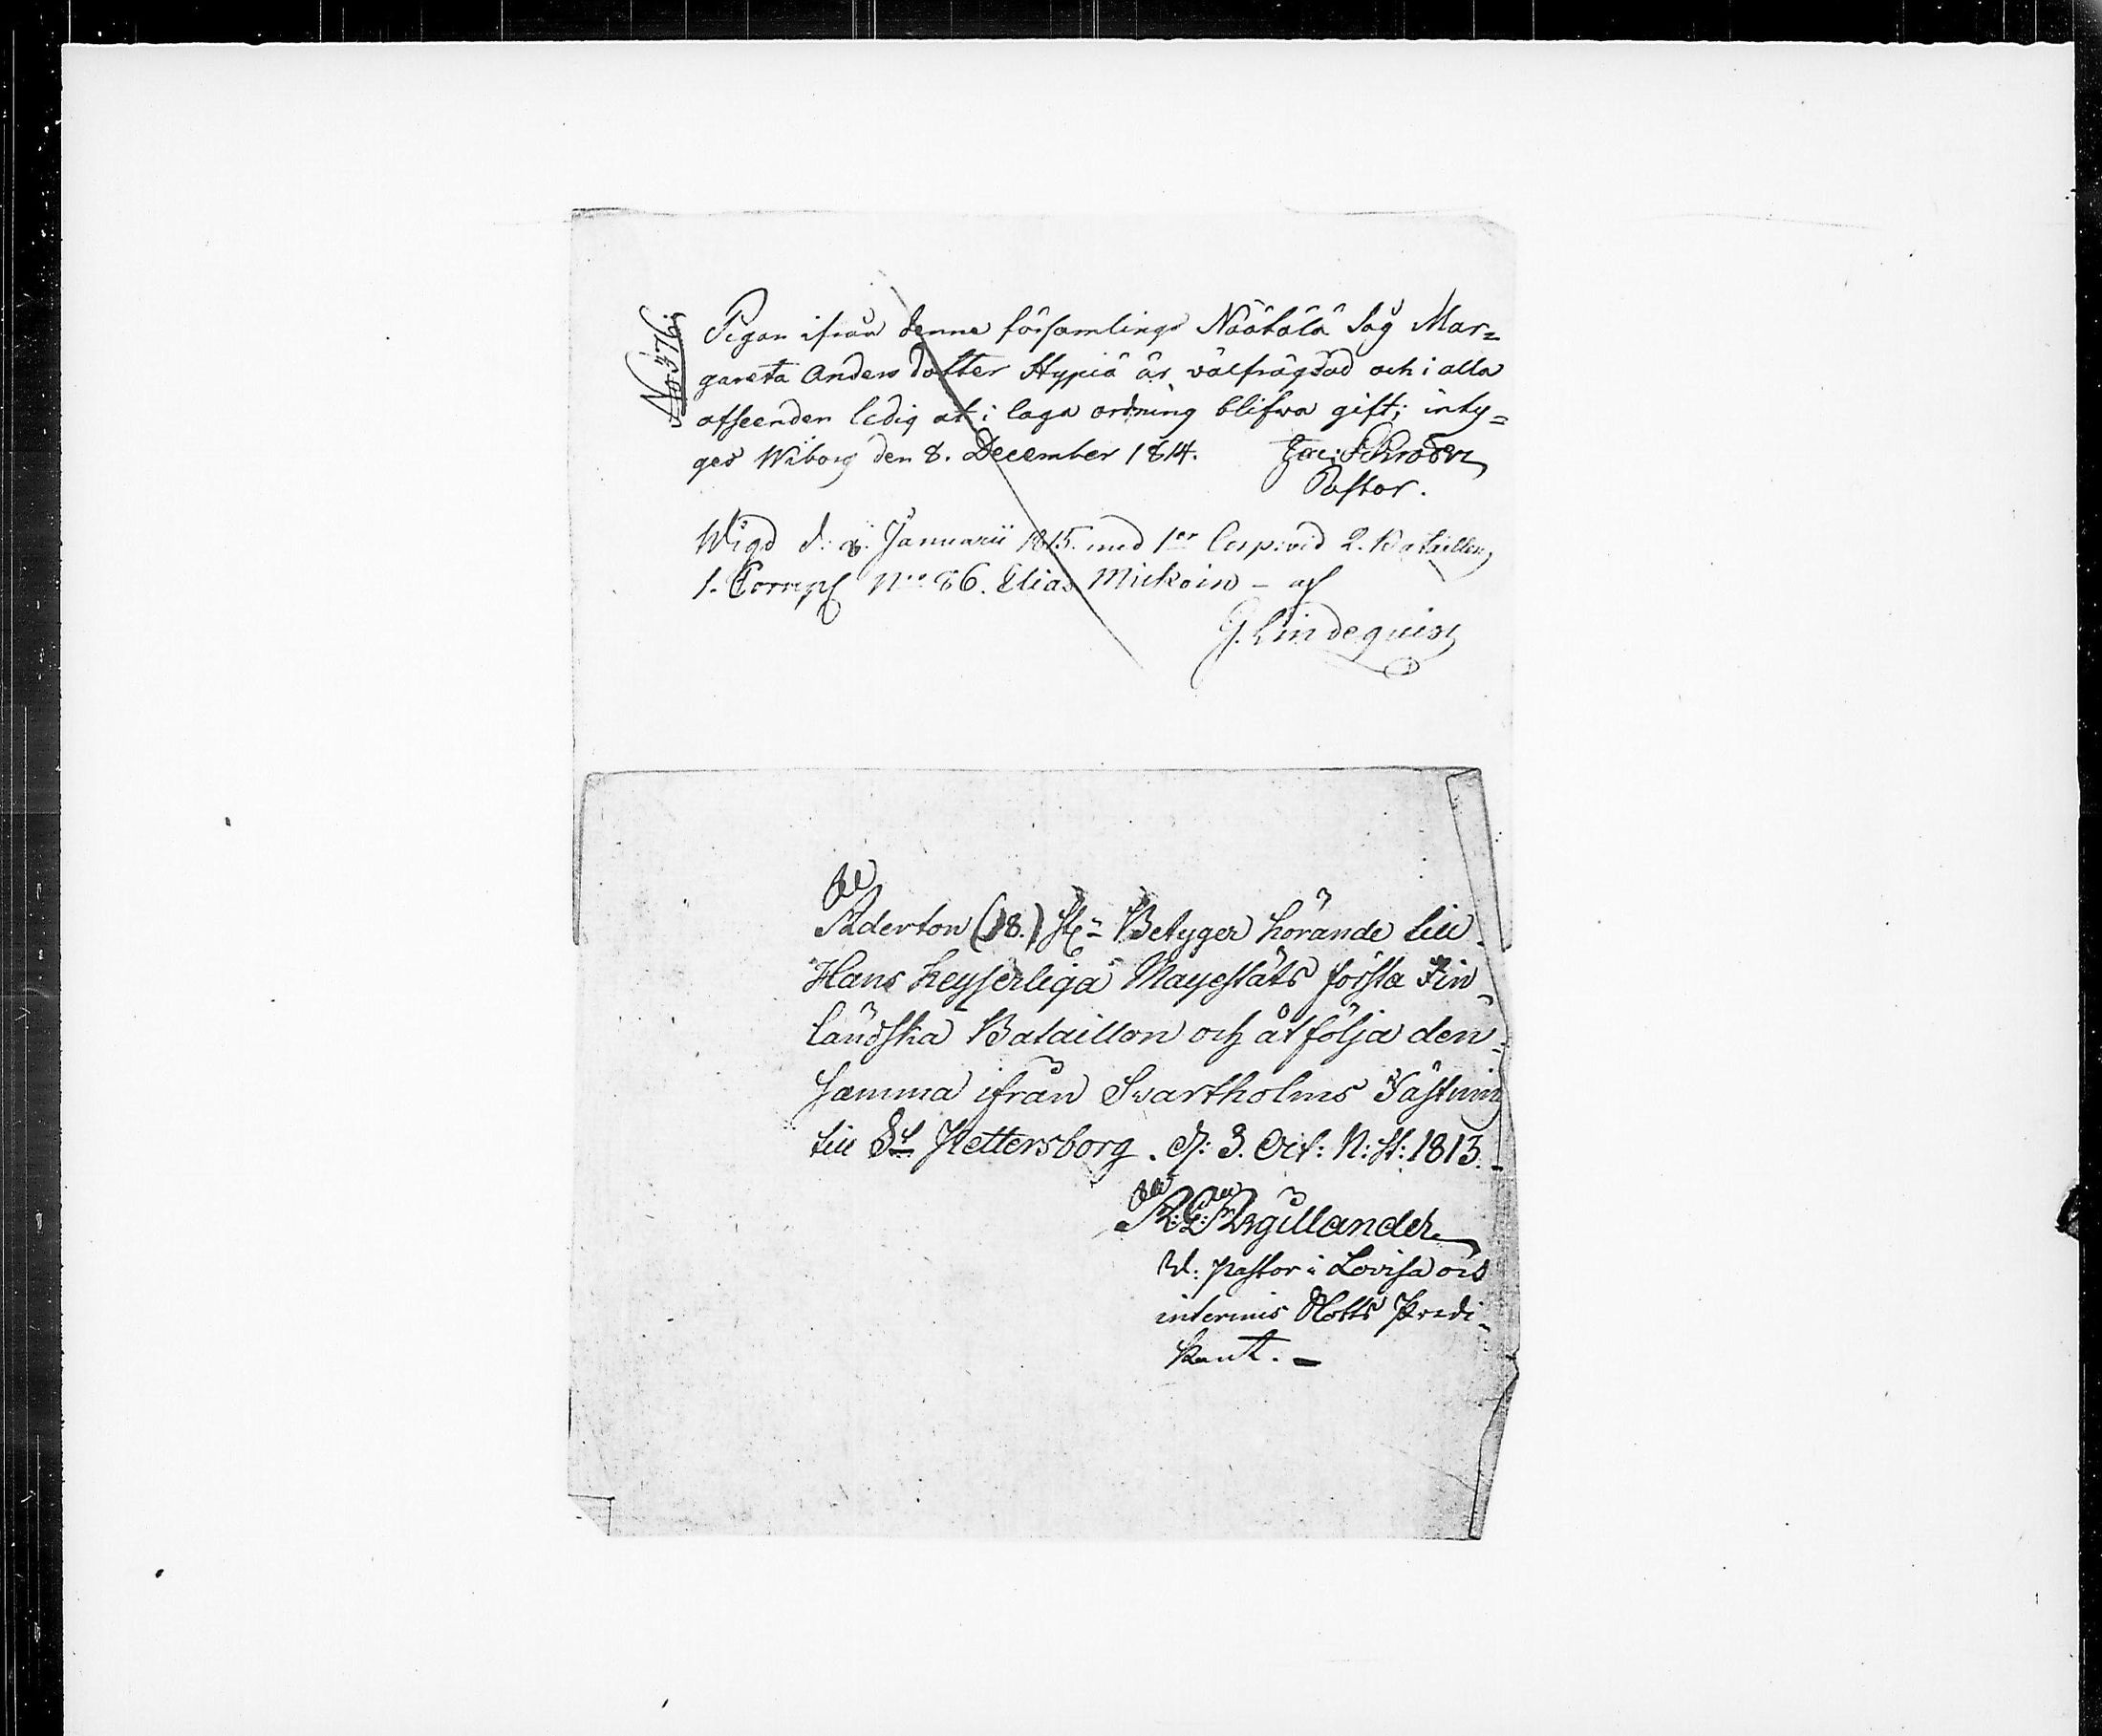 No 576.
Pigan ifrån denne församlings Näätälä Såg Mar=
gareta Anders dotter Hypiä är välfrägdad och i alla
afseenden ledig at i laga ordning blifva gift; inty=
gas Wiborg den 8. December 1814. Jac: Schroder
Pastor.
Wigd d: 8. Januarii 1815. med 1er Corp: vid 2. Bataillon,
1. Comp N:o 86. Elias Mickoin – af
G. Lindequist
Aderton (18.) St: Betyger hörande till
Hans Keyserliga Mayestäts första Fin-
ländska Bataillon och åtfölja den-
samma ifrån Svartholms Fästning
till St Pettersborg. d: 3. Oct: N: St: 1813.
Argillander
V: Pastor i Lovisa och
interims Slotts Predi-
kant. –